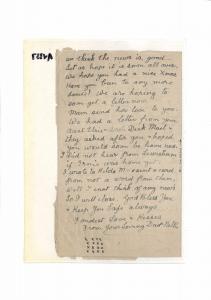 we think the news is good
Let us hope it is soon all over,
We hope you had a nice Xmas
Have you been to any more
homes? We are hoping to
soon get a letter now.
Mam send her love to you.
We had a letter from your
Aunt Elsie Dick Mail &
they asked after you & hoped
You would soon be home now.
I did not hear from Lewisham
if Ernie was home yet.
I wrote to Hilda M. sent a card &
from not a word from them,
Well I cant think of any news
So I will close. God Bless You
& Keep You Safe always
Fondest Love & Kisses
From Your Loving Dad
x x x x
x x x x
x x x x
x x x x